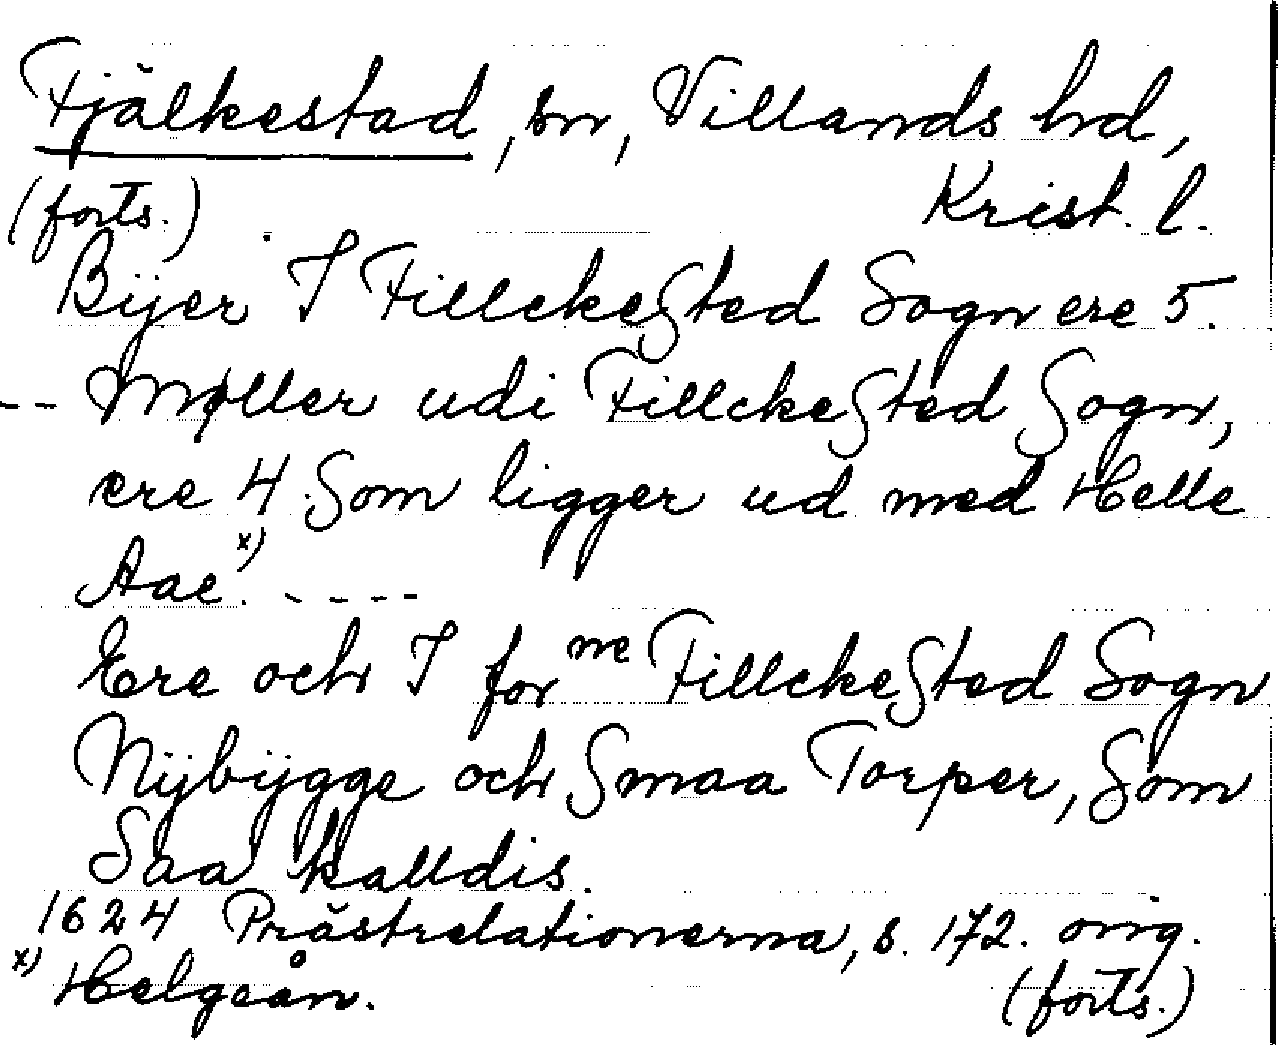 Fjälkestad, sn, Villands hd,
(forts.) Krist. l.
Bÿer I FillckeSted Sogn ere 5.
-- Møller udi FillckeSted Sogn,
ere 4. Som ligger ud med Helle
Aae x). ----
Ere och I for ne FillckeSted Sogn
Nÿbÿgge och Smaa Torper, Som
Saa kalldis.
1624 Prästrelationerna, s. 172. orig.
x) Helgeån. (forts.)